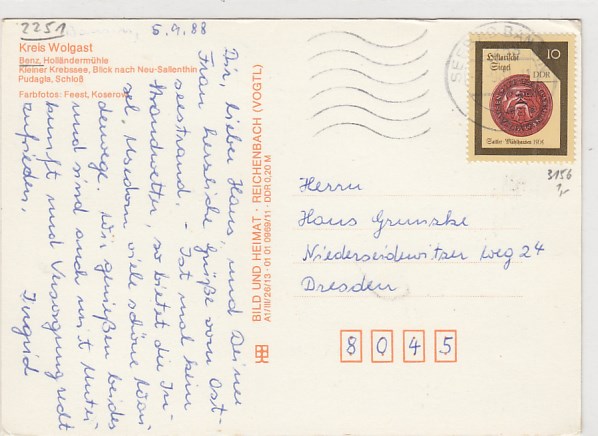 2251
5.9.88
Kreis Wolgast
Benz, Holländermühle
Kleiner Krebssee, Blick nach Neu-Sallenthin
Pudagla, Schloß
Farbfotos: Feest, Koserow
Dir, lieber Hans, und Deiner
Frau herzliche Grüße vom Ost-
seestrand. - Ist mal kein
Strandwetter, so bietet die In-
sel Usedom viele schöne Wan-
derwege. Wir genießen beides
und sind auch mit Unter-
kunft und Versorgung recht
zufrieden. Ingrid
BILD UND HEIMAT · REICHENBACH (VOGTL)
A1/III/26/13 · 01 01 0969/11 · DDR 0,20 M
10
Historische
Siegel
DDR
Sattler · Mühlhausen 1608
3156
Herrn
Hans
Niedersedewitzer Weg 24
Dresden
8045